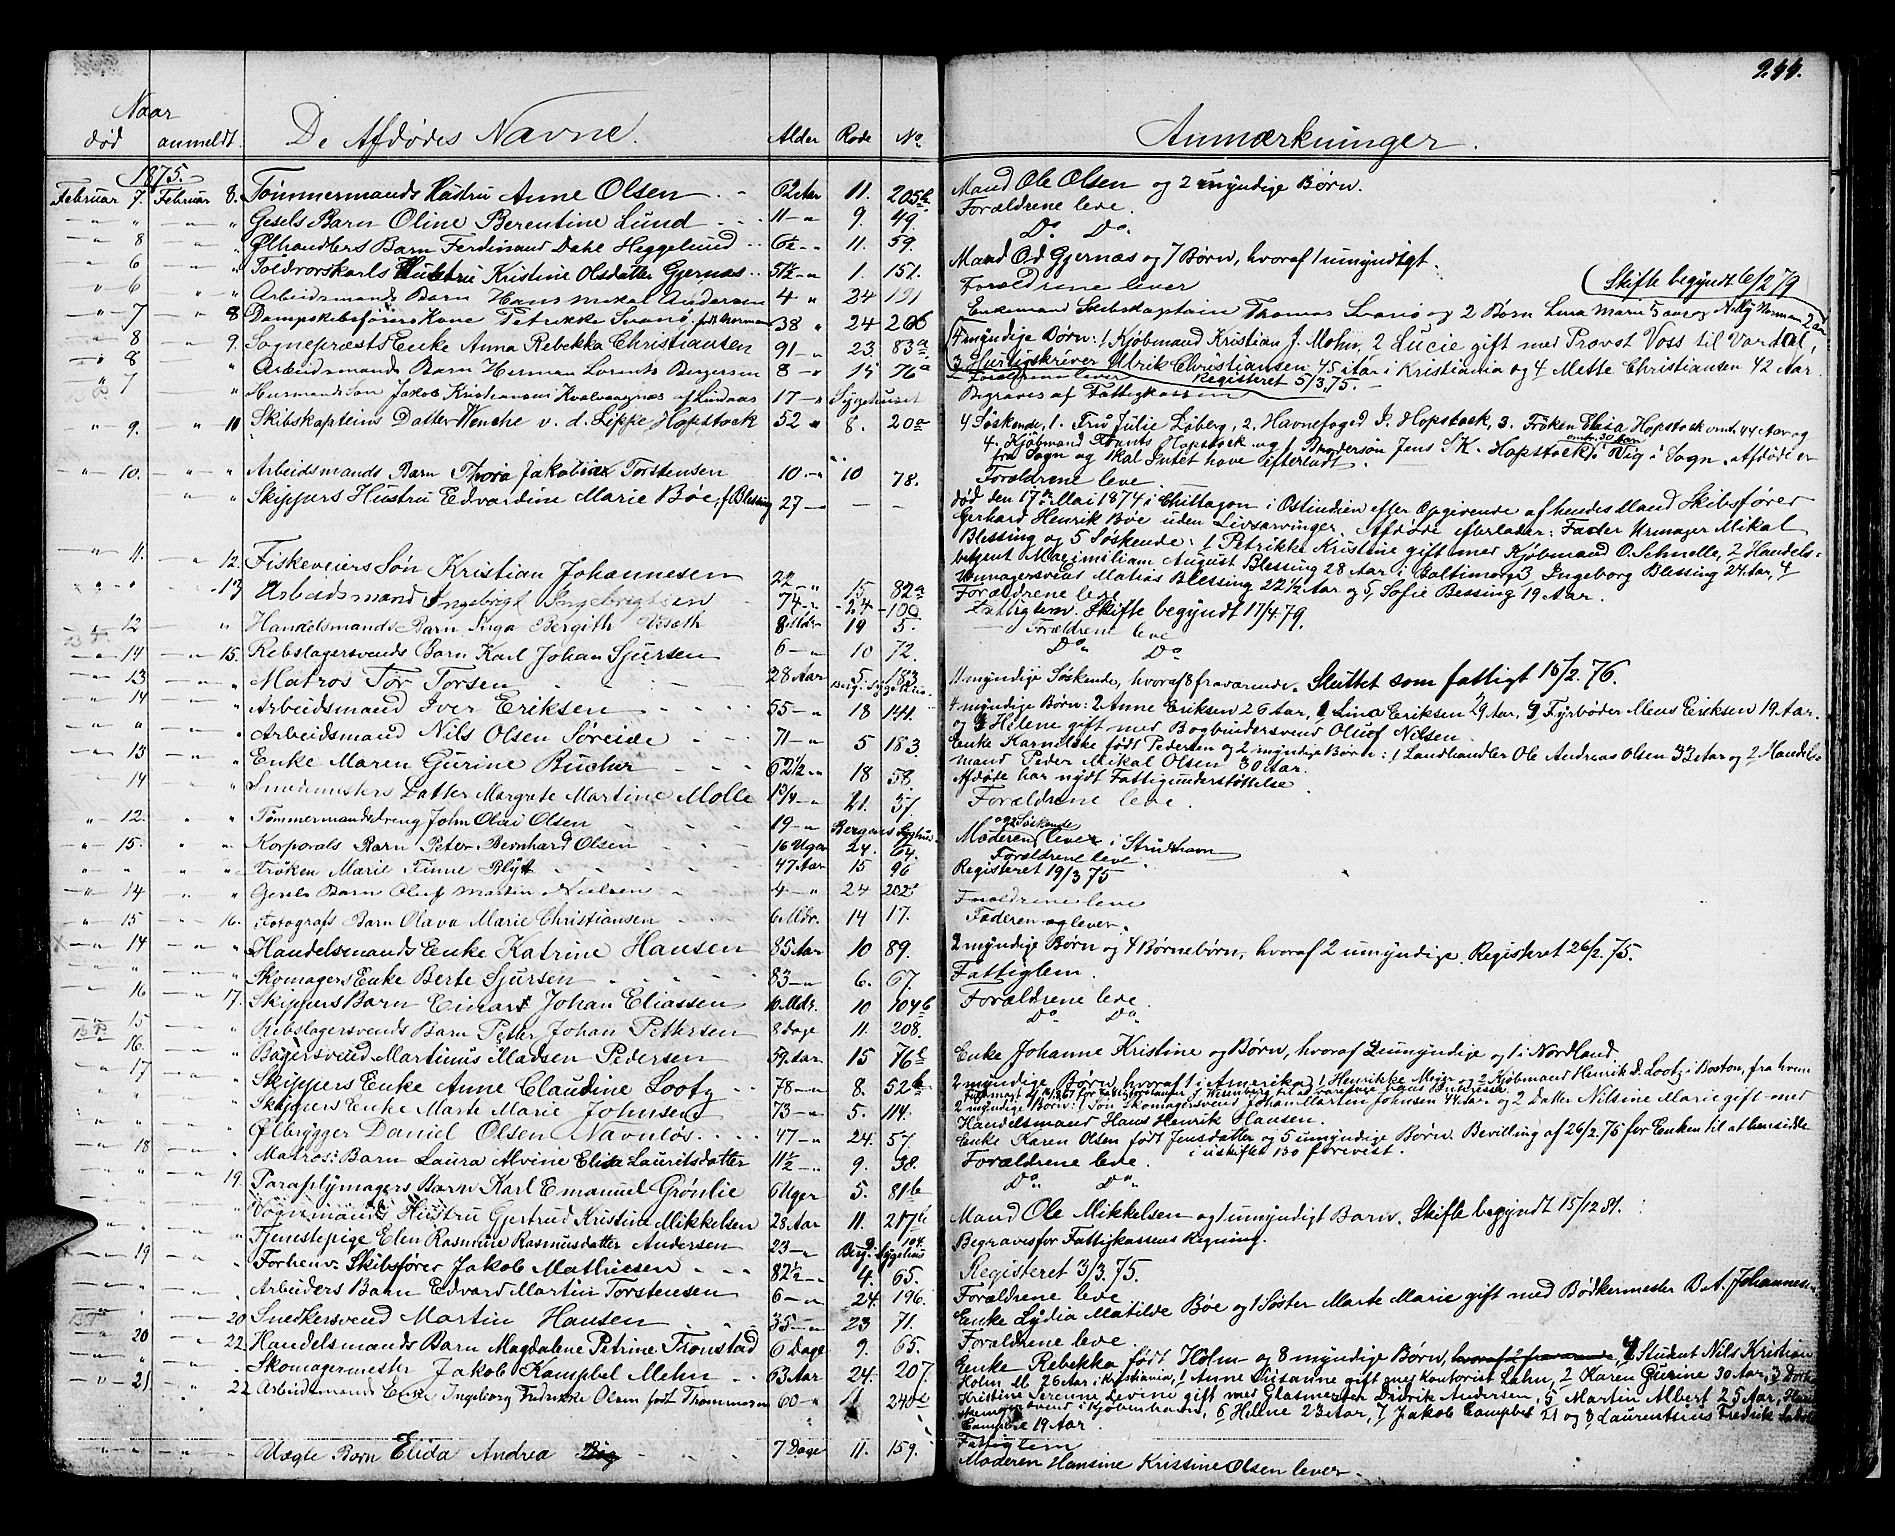 244.
Naar
død anmeldt. De Afdødes Navne. Alder Rode No Anmærkninger.
1875.
Februar 7. Februar 8. Tømmermands Hustru Anne Olsen 62 Aar 11. 205b Mand Ole Olsen og 2 umyndige Børn.
" " Gesels Barn Oline Berentine Lund 11 " 9. 49. Forældrene leve.
8 " Ølhandlers Barn Ferdinand Dahl Heggelund 11. 59. Do Do
6 " Toldvorskarls Hustru Kristine Olsdatter Gjernæs 1. 151. Mand O. d Gjernæs og 7 Børn, hvoraf 1 umyndigt.
6 " Arbeidsmands Barn Hans Mikal Andersen 4 " 24 191 Forældrene lever
Skifte begyndt 6/2 79
7 8 Dampskibsførers Kone Petrikke Svanø, født Norman 38 " 24 206 Enkemand Skibskaptein Thomas Svanø og 2 Børn Lina Marie 5 aar og Nilly Norman 2 aar
8 9. Sognepræsts Enke Anna Rebekka Christiansen 91 " 23. 83a 4 myndige Børn: 1 Kjøbmand Kristian J. Mohn, 2 Lucie gift med Provst Voss til Vardal,
3 Hurtigskriver Ulrik Christiansen 45 Aar i Kristiania og 4 Mette Christiansen 42 Aar.
Registeret 5/3. 75.
8 " Arbeidsmands Barn Herman Lorents Bergersen 8 " 15 76a Forældrene leve
7 " Husmands Søn Jakob Kristiansen Kvalvaagnæs af Lindaas 17 " Sygehuset Begraves af Fattigkassen
9. 10 Skibskapteins Datter Wenche v. d. Lippe Hopstock 52 " 8. 20a 4 Søskende, 1. Fru Julie Løberg, 2. Havnefoged J. Hopstock, 3. Frøken Elisa Hopstock omt. 44 Aar og
4. Kjøbmand Frants Hopstock og 1 Brodersøn Jens S. K. Hopstock omtr. 30 Aar i Vig i Sogn. Afdøde er
fra Sogn og skal Intet have efterladt.
10. " Arbeidsmands Barn Thora Jakobine Torstensen 10 " 10 78. Forældrene leve
" Skippers Hustru Edvardine Marie Bøe, f. Blessing 27 " — — død den 17de Mai 1874 i Chittagon i Ostindien efter Opgivende af hendes Mand Skibsfører
Gerhard Henrik Bøe uden Livsarvinger. Afdøde efterlader: Fader Urmager Mikal
Blessing og 5 Søskende: 1 Petrikke Kristine gift med Kjøbmand O. Schnelle, 2 Handels-
betjent Maximiliam August Blessing 28 Aar i Baltimore, 3 Ingeborg Blessing 24 Aar, 4
Urmagersvend Matias Blessing 22½ Aar og 5, Sofie Blessing 19 Aar.
11. 12. Fiskeveiers Søn Kristian Johannesen 22 " 15 82a Forældrene leve
" 13 Arbeidsmand Ingebrigt Ingebrigtsen 74 " 24 100 Fattiglem. Skifte begyndt 17/4. 79.
12 " Handelsmands Barn Inga Bergith Aasæth 8 Mdr 19 5. Forældrene leve
14 15. Rebslagersvends Barn Karl Johan Sjursen 6 " 10 72. Do Do
13 " Matros Tor Torsen 28 Aar 5. 183 11 myndige Søskende, hvoraf 8 fraværende. Sluttet som fattigt 16/2. 76.
14 " Arbeidsmand Iver Eriksen 55 " 18 144. 4 myndige Børn: 2 Anne Eriksen 26 Aar, 1 Lina Eriksen 29 Aar, 4 Fyrbøder Mens Eriksen 19 Aar.
og 3 Helene gift med Bogbindersvend Oluf Nilsen.
" " Arbeidsmand Nils Olsen Søreide 71 " 5 183 Enke Karneleke født Pedersen og 2 myndige Børn: 1 Landhandler Ole Andreas Olsen 33 Aar og 2 Handels-
mand Peder Mikal Olsen 30 Aar.
13 " Enke Maren Gurine Bucher 62½ " 18 58. Afdøde har nydt Fattigunderstøttelse.
14 " Smedmesters Datter Margrete Martine Molle 13/4 " 21. 37. Forældrene leve.
12. " Tømmermandsdreng John Olai Olsen 19 " Bergens Sygehus Moderen og 2 Søskende lever i Strudshavn
15. " Korporals Barn Peter Bernhard Olsen 16 Uger 24. 64. Forældrene leve
" " Frøken Marie Finne Blytt 47 Aar 15 96 Registeret 19/3 75
14 " Gesels Barn Oluf Martin Nielsen 4 " 24 202 Forældrene leve
15 16. Fotografs Barn Olava Marie Christiansen 6 Mdr. 14 17. Faderen og lever.
14 " Handelsmands Enke Katrine Hansen 85 Aar 10 89. 2 myndige Børn og 4 Børnebørn, hvoraf 2 umyndige. Registeret 26/2. 75.
" " Skomagers Enke Berte Sjursen 83 " 6. 67. Fattiglem.
16 17. Skippers Barn Einar Johan Eliassen 10 Mdr. 10 104b Forældrene leve
15 " Rebslagersvends Barn Petter Johan Pettersen 8 Dage 11. 208. Do Do
16. " Bagersvend Martinus Madsen Pedersen 59 Aar 15 76b Enke Johanne Kristine og Børn, hvoraf 2 umyndige og 1 i Nordland.
17 " Skippers Enke Anne Claudine Lootz 78 " 8. 52b 2 myndige Børn, hvoraf 1 i Amerika, 1 Henrikke Meyer og 2 Kjøbmand Henrik D. Lootz i Boston, fra hvem
" " Skippers Enke Marte Marie Johnsen 73 " 5. 114. 2 myndige Børn: 1 Søn Skomagersvend Johan Martin Johnsen 44 Aar og 2 Datter Nilsine Marie gift med
Handelsmand Hans Henrik Hansen.
" " Ølbrygger Daniel Olsen Navnløs 47 " 24. 57 Enke Karen Olsen født Jensdatter og 5 umyndige Børn. Bevilling af 26/2. 75 for Enken til at hensidde
i uskiftet Bo forevist.
18 " Matros: Barn Laura Alvine Elise Lauritsdatter 11½ " 9. 38. Forældrene leve
" 19. Paraplymagers Barn Karl Emanuel Grønlie 6 Uger 5. 81b Do Do
" " Vognmands Hustru Gjertrud Kristine Mikkelsen 28 Aar 11. 217b Mand Ole Mikkelsen og 1 umyndigt Barn. Skifte begyndt 15/12 81.
" " Tjenstepige Elen Rasmine Rasmusdatter Andersen 23 " Berg. Sygehus Begraves for Fattigkassens Regning.
19 " Forhenv. Skibsfører Jakob Mathiesen 82½ " 4. 65. Registeret 3/3. 75.
" " Arbeiders Barn Edvard Martin Torstensen 6 " 24. 196. Forældrene leve
" 20 Snedkersvend Martin Hansen 35 " 23 71. Enke Lydia Matilde Bøe og 1 Søster Marte Marie gift med Bødkermester B. A. Johannesen
20 22. Handelsmands Barn Magdalene Petrine Tronstad 6 Dage 9. 65. Forældrene leve
" " Skomagermester Jakob Kampbel Mehn 63 Aar 24. 207. Enke Rebekka født Holm og 8 myndige Børn, hvoraf 2 fraværende. 4 Student Nils Kristian
Holm M. 26 Aar i Kristiania, 1 Anne Susanne gift med Kontorist Lahn, 2 Karen Gurine 30 Aar, 3 Dorthe
Kristine Serenne Levine gift med Glasmester Didrik Andersen, 5 Martin Albert 25 Aar,
i Kjøbenhavn, 6 Helene 23 Aar, 7 Jakob Campbel 21 og 8 Laurentsius Fredrik
19 Aar
21. 22 Arbeidsmands Enke Ingeborg Fredrikke Olsen født Thommesen 60 " 11. 240b Fattiglem
" " Uægte Barn Elida Andrea 7 Dage 11. 159. Moderen Hansine Kristine Olsen lever.